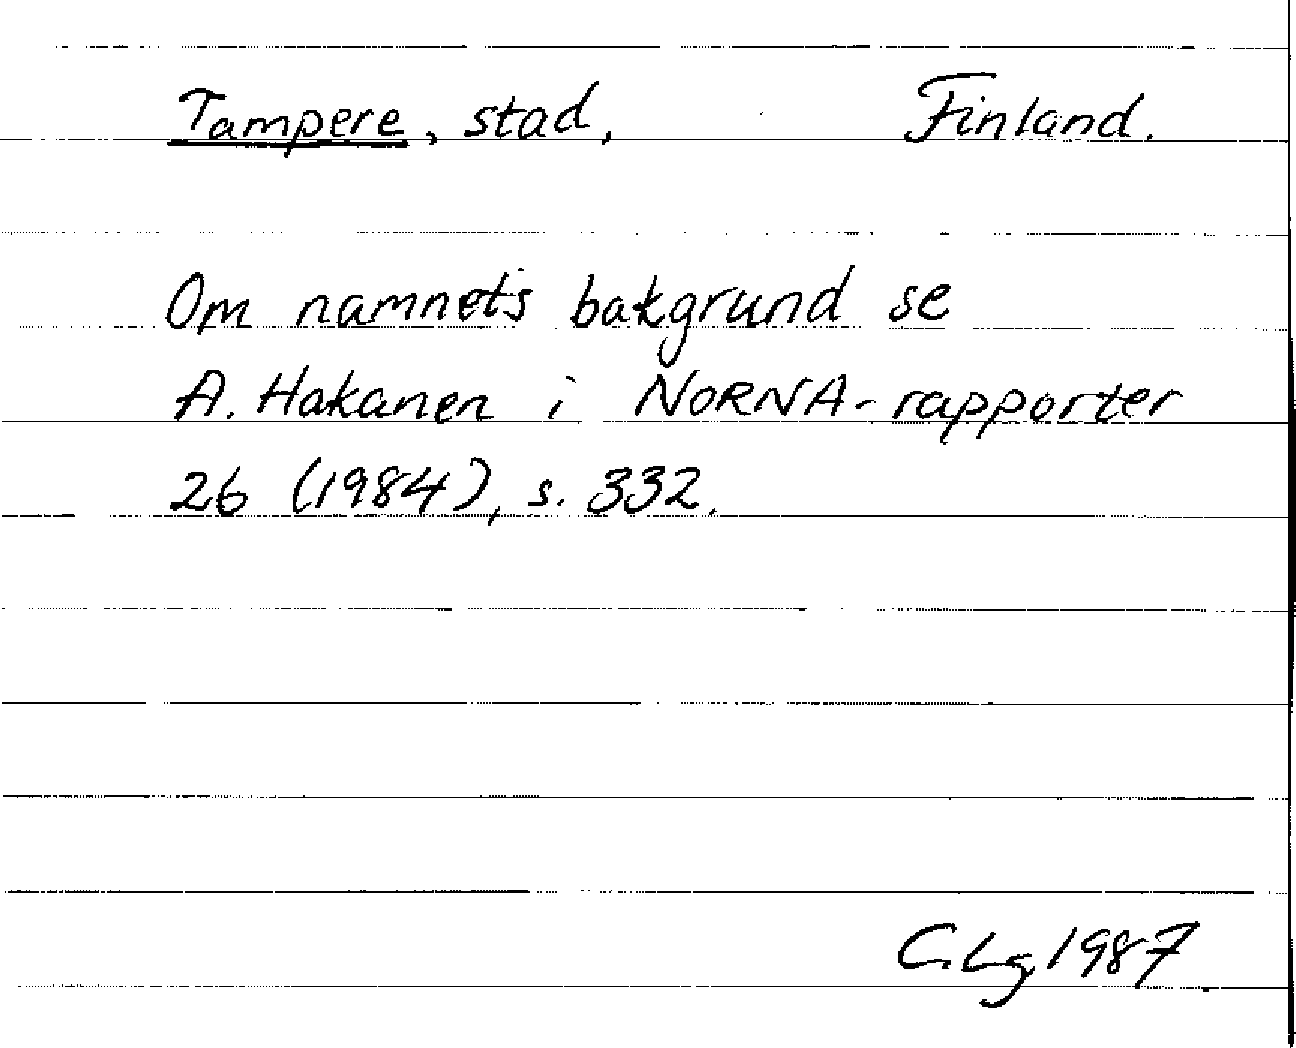 Tampere, stad, Finland.
Om namnets bakgrund se
A. Hakanen i NORNA-rapporter
26 (1984), s. 332.
C.Lg. 1987